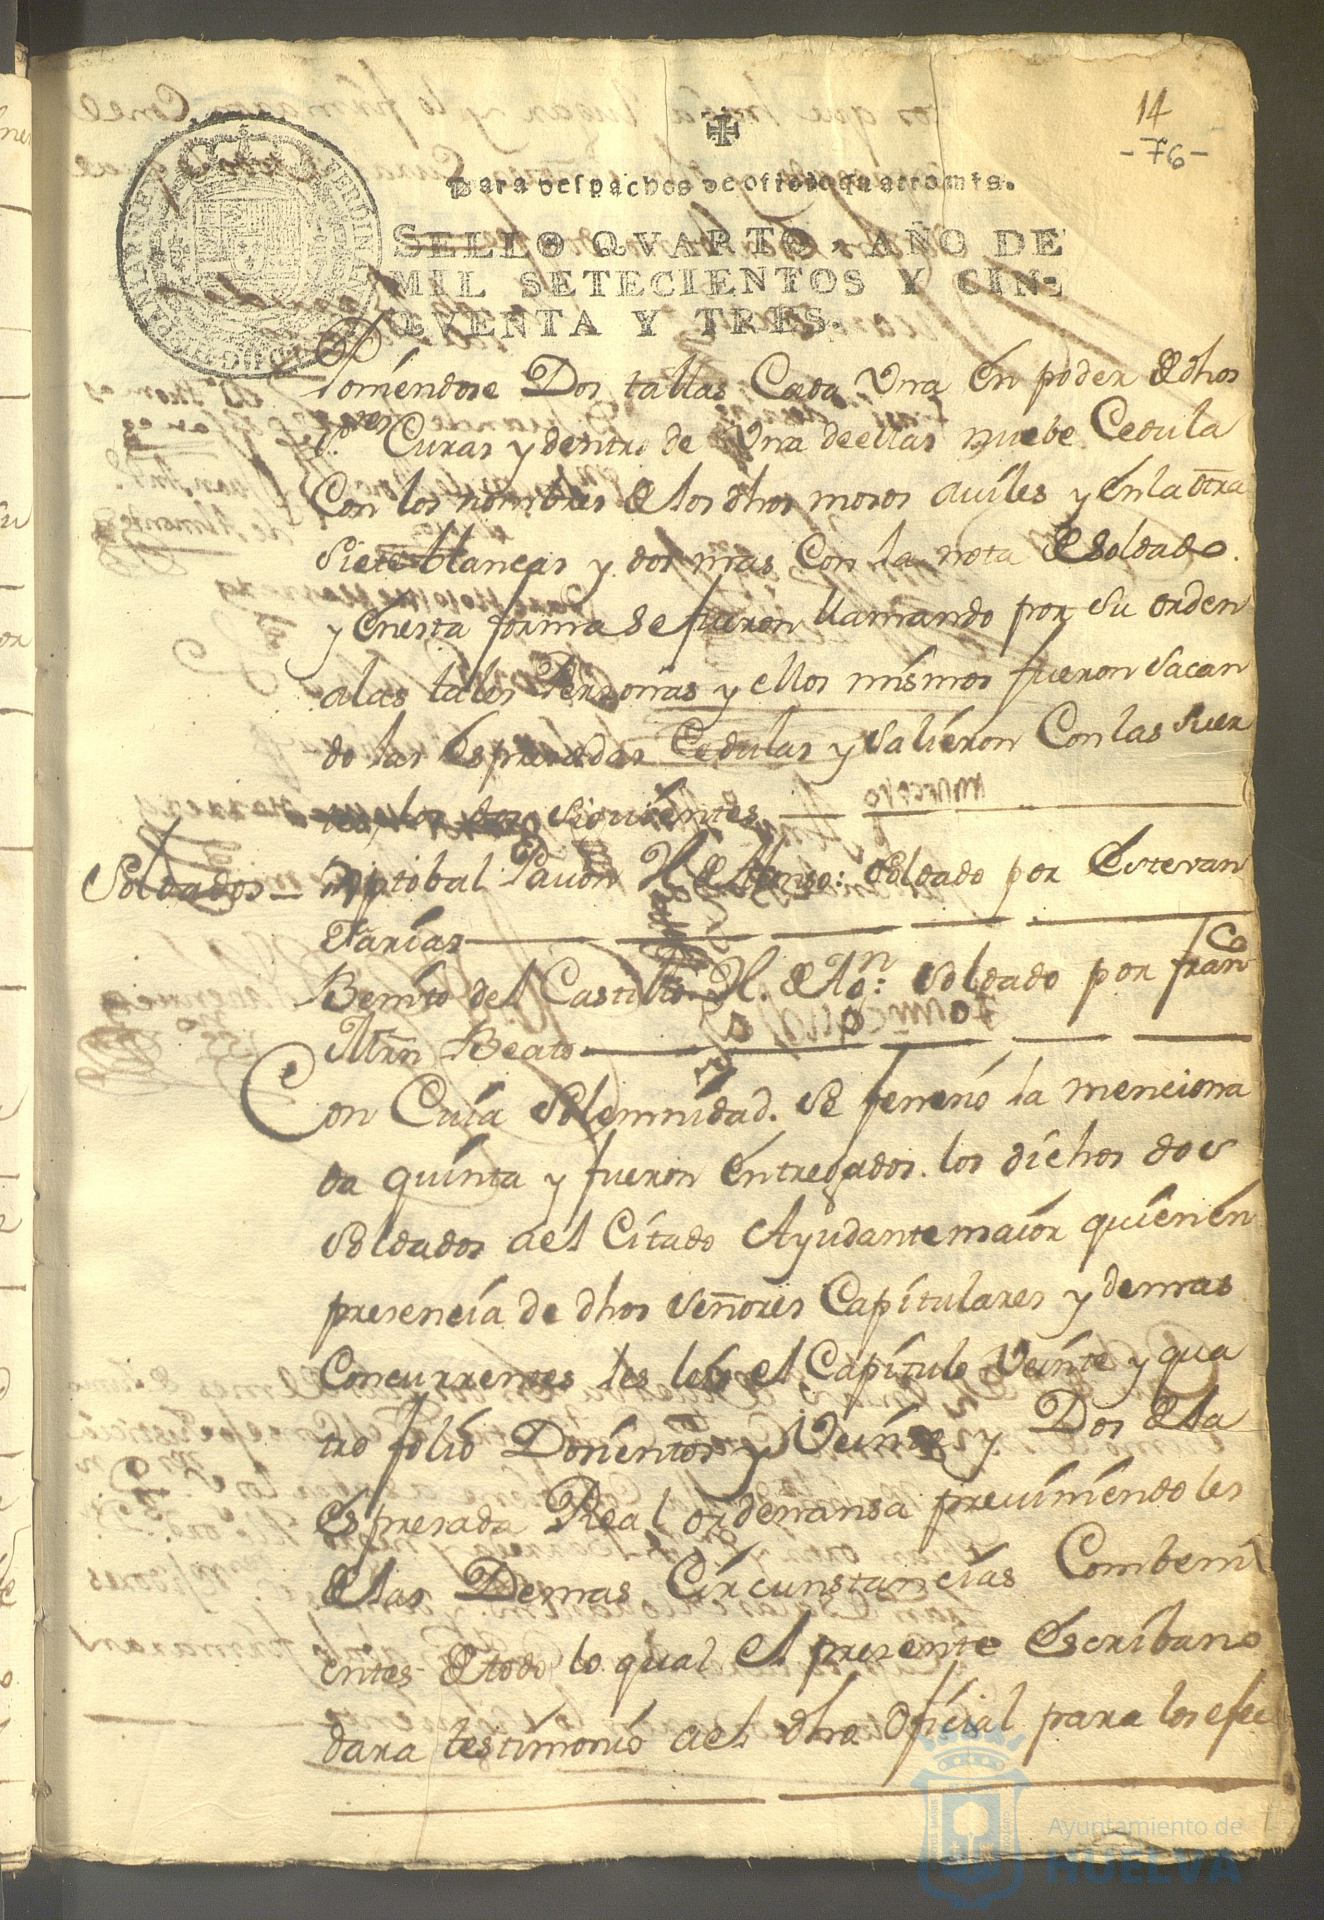 14
-76-
Para despachos de oficio quatro mrs.
SELLO QVARTO, AÑO DE
MIL SETECIENTOS Y CIN-
QVENTA Y TRES.
Poniendose Dos tallas Cada Vna en poder de dhos
s.res Curas y dentro de Vna de ellas nuebe Cedula
Con los nombres de los dhos mosos aviles y en la otra
siete blancas y dos mas Con la nota de Soldado.
y en esta forma se fueron llamando por su orden
a las tales Personas y ellos mismos fueron sacan
do las espresadas Cedulas y salieron Con las suer
tes los dos siguientes
Soldados Christobal Pavon H. de Alonso: Soldado por Estevan
Farias
Benito del Castillo H. de Al.n: Soldado por fran.co
Mrn Beato
Con Cuia Solemnidad. se feneció la menciona
da quinta y fueron entregados. los dichos dos
Soldados ael Citado Ayudante maior quien en
presencia de dhos Señores Capitulares y demas
Concurrentes les leio el Capitulo Veinte y qua
tro folio Dosientos y Veinte y Dos de la
espresada Real ordenansa previniendoles
de las Demas Circunstancias Combeni
entes de todo lo qual el presente Escribano
dara testimonio ael dho Oficial para los efec
Ayuntamiento de
HUELVA